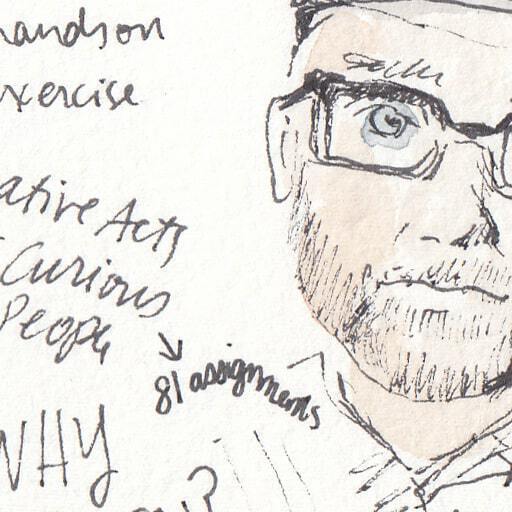 handson
exercise
ative Acts
Curious
People
81 assignments
WHY
?